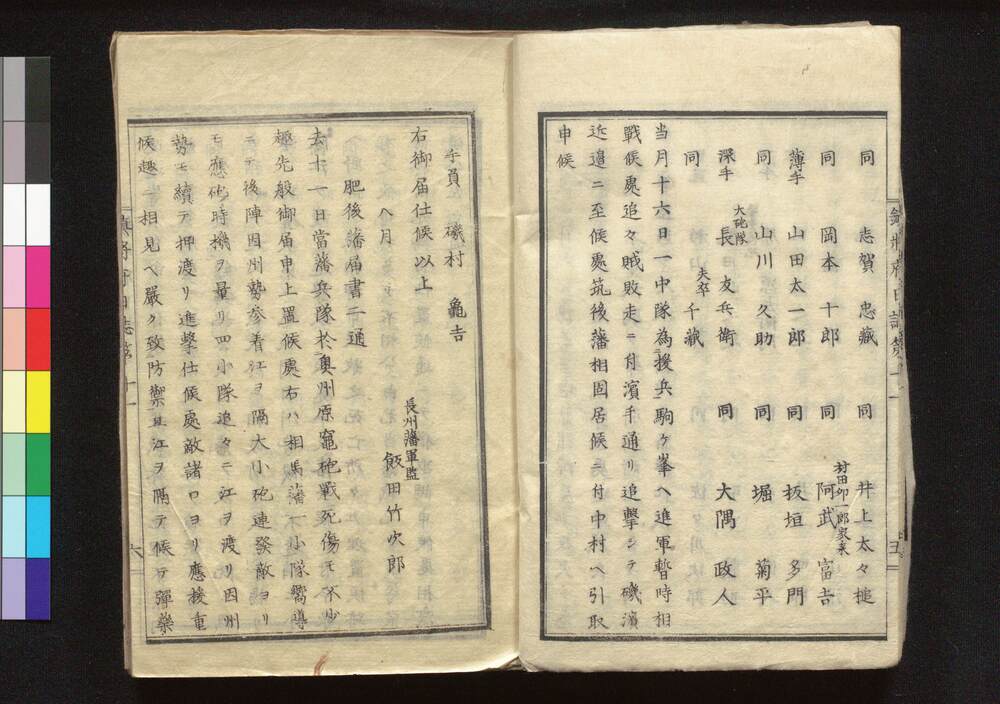 同 志賀 忠藏 同 井上太々槌
同 岡本 十郎 同 村田卯一郎家来 阿武 富吉
薄手 山田太一郎 同 坂垣 多門
同 山川 久助 同 堀 菊平
深手 大砲隊 長 友兵衛 同 大隅 政人
同 夫卒 千藏
当月十六日一中隊為援兵駒ケ峯ヘ進軍暫時相
戰候處追々賊敗走ニ付濱手通リ追撃シテ磯濱
近邉ニ至候處筑後藩相固居候ニ付中村ヘ引取
申候
手負 磯村 龜吉
右御届仕候以上
八月 長州藩軍監 飯田竹次郎
肥後藩届書二通
去十一日當藩兵隊於奥州原竈砲戰死傷モ不少
趣先般御届申上置候處右ハ相馬藩一小隊嚮導
ニテ後陣因州勢参着江ヲ隔大小砲連發敵ヨリ
モ應砲時機ヲ量リ四小隊追々ニ江ヲ渡リ因州
勢モ續テ押渡リ進撃仕候處敵諸口ヨリ應援重
候趣 相見ヘ嚴ク致防禦且江ヲ隔テ候テ彈藥
六
五